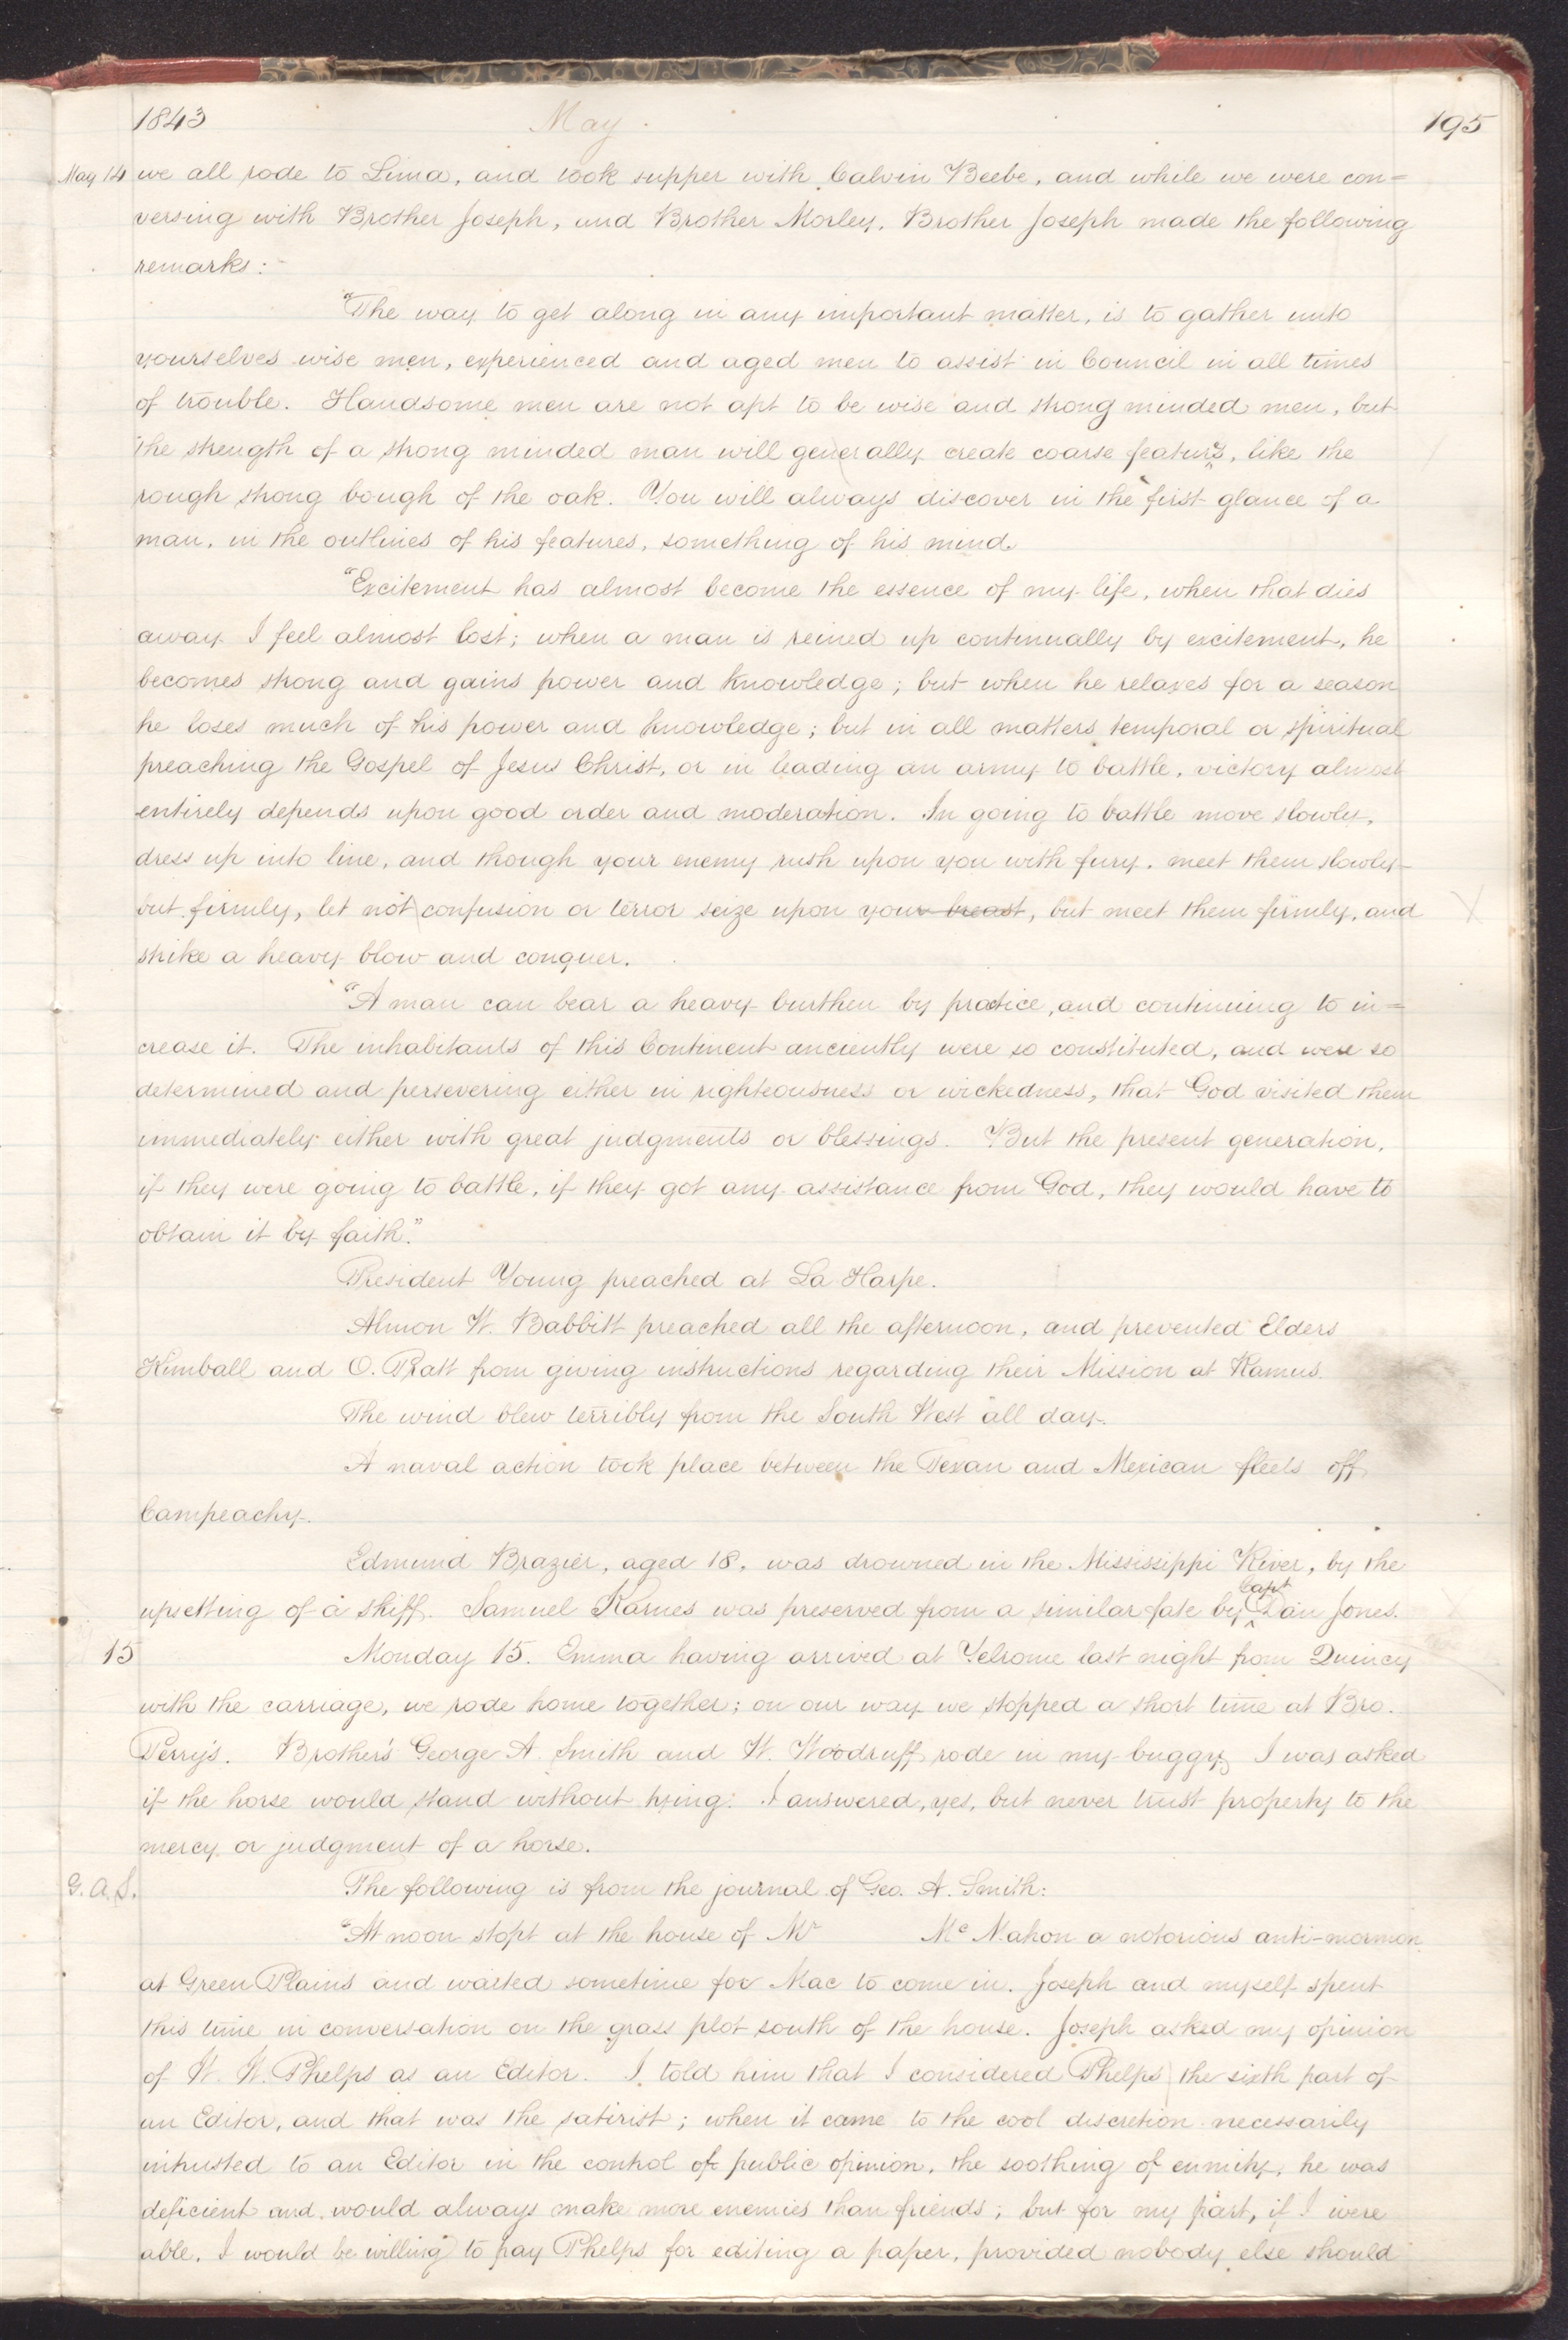 1843 May. 195
May 14 we all rode to Lima, and took supper with Calvin Beebe, and while we were con=
versing with Brother Joseph, and Brother Morley, Brother Joseph made the following
remarks:-
"The way to get along in any important matter, is to gather unto
yourselves wise men, experienced and aged men to assist in Council in all times
of trouble. Handsome men are not apt to be wise and strong minded men, but
the strength of a strong minded man will generally create coarse features, like the
rough strong bough of the oak. You will always discover in the first glance of a
man, in the outlines of his features, something of his mind.
"Excitement has almost become the essence of my life, when that dies
away I feel almost lost; when a man is reined up continually by excitement, he
becomes strong and gains power and knowledge; but when he relaxes for a season
he loses much of his power and knowledge; but in all matters temporal or spiritual
preaching the Gospel of Jesus Christ, or in leading an army to battle, victory almost
entirely depends upon good order and moderation. In going to battle move slowly,
dress up into line, and though your enemy rush upon you with fury, meet them slowly
but firmly, let not confusion or terror seize upon your breast, but meet them firmly, and
strike a heavy blow and conquer.
"A man can bear a heavy burthen by practice, and continuing to in=
crease it. The inhabitants of this Continent anciently were so constituted, and were so
determined and persevering either in righteousness or wickedness, that God visited them
immediately either with great judgments or blessings. But the present generation,
if they were going to battle, if they got any assistance from God, they would have to
obtain it by faith."
President Young preached at La Harpe.
Almon W. Babbitt preached all the afternoon, and prevented Elders
Kimball and O. Pratt from giving instructions regarding their Mission at Ramus.
The wind blew terribly from the South West all day.
A naval action took place between the Texan and Mexican fleets off
Campeachy.
Edmund Brazier, aged 18, was drowned in the Mississippi River, by the
upsetting of a skiff. Samuel Karnes was preserved from a similar fate by Capt Dan Jones.
15 Monday 15. Emma having arrived at Yelrome last night from Quincy
with the carriage, we rode home together; on our way we stopped a short time at Bro.
Perry's. Brother's George A. Smith and W. Woodruff rode in my buggy, I was asked
if the horse would stand without tying: I answered, yes, but never trust property to the
mercy or judgment of a horse.
G. A. S. The following is from the journal of Geo. A. Smith:
"At noon stopt at the house of Mr Mc Mahon a notorious anti-mormon
at Green Plains and waited sometime for Mac to come in. Joseph and myself spent
this time in conversation on the grass plot south of the house. Joseph asked my opinion
of W. W. Phelps as an Editor. I told him that I considered Phelps the sixth part of
an Editor, and that was the satirist; when it came to the cool discretion necessarily
intrusted to an Editor in the control of public opinion, the soothing of enmity, he was
deficient and would always make more enemies than friends; but for my part, if I were
able, I would be willing to pay Phelps for editing a paper, provided nobody else should